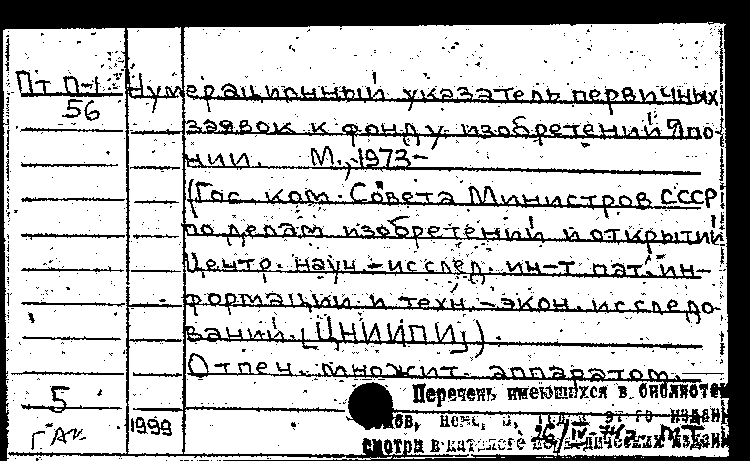 Пт П-1 Нумерационный указатель первичных
56 заявок к фонду изобретений Япо-
нии. М., 1973-
(Гос. ком. Совета Министров СССР
по делам изобретений и открытий
Центр. науч.-исслед. ин-т пат. ин-
формации и техн.-экон. исследо-
ваний. [ЦНИИПИ]).
Отпеч. множит. аппаратом.
5 Перечень имеющихся в библиотеке
1999
смотри в каталоге периодических издан